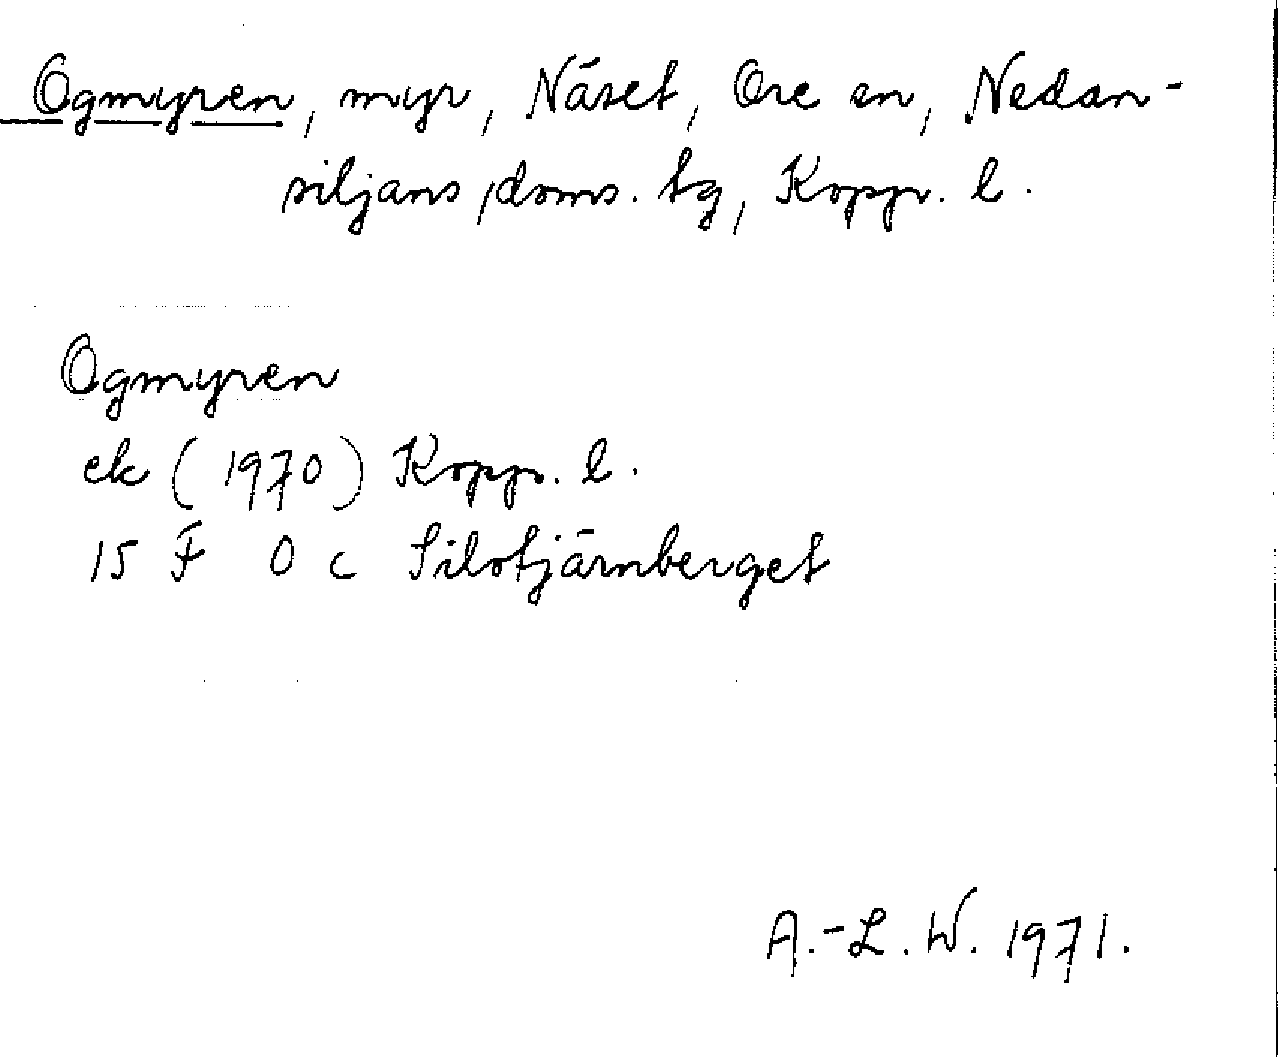 Ogmyren, myr, Näset, Ore sn, Nedan-
siljans doms. tg, Kopp. l.
Ogmyren
ek (1970) Kopp. l.
15 F 0 c Silotjärnberget
A.-L. W. 1971.